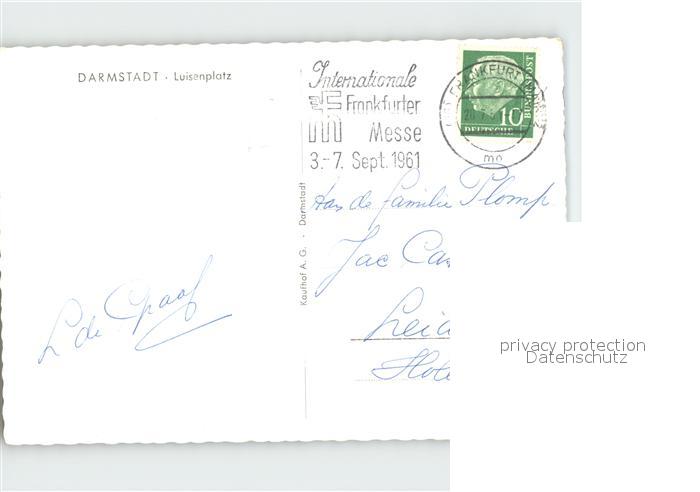 DARMSTADT · Luisenplatz
Internationale
Frankfurter
Messe
3.-7. Sept. 1961
FRANKFURT
10
DEUTSCHE
BUNDESPOST
mo
Kaufhof A. G. · Darmstadt
Aan de familie Plomp
Jac Cas
Leid
Hote
L de Graaf
privacy protection
Datenschutz